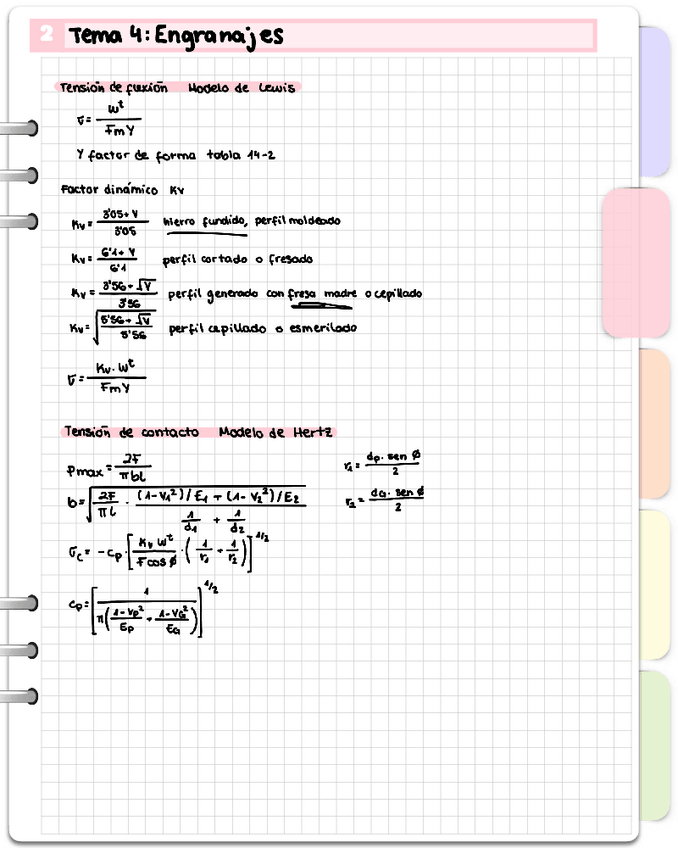 2 Tema 4: Engranajes
Tensión de flexión Modelo de Lewis
σ = W^t / FmY
Y factor de forma tabla 14-2
Factor dinámico Kv
Kv = (3'05 + V) / 3'05 hierro fundido, perfil moldeado
Kv = (6'1 + V) / 6'1 perfil cortado o fresado
Kv = (3'56 + √V) / 3'56 perfil generado con fresa madre o cepillado
Kv = √((5'56 + √V) / 5'56) perfil cepillado o esmerilado
σ = Kv · W^t / FmY
Tensión de contacto Modelo de Hertz
Pmax = 2F / πbl r1 = dp · sen ϕ / 2
b = √(2F / πl · ((1-V1²)/E1 + (1-V2²)/E2) / (1/d1 + 1/d2)) r2 = dG · sen ϕ / 2
σc = -Cp · [Kv W^t / F cos ϕ · (1/r1 + 1/r2)]^1/2
Cp = [1 / π((1-Vp²)/Ep + (1-VG²)/EG)]^1/2